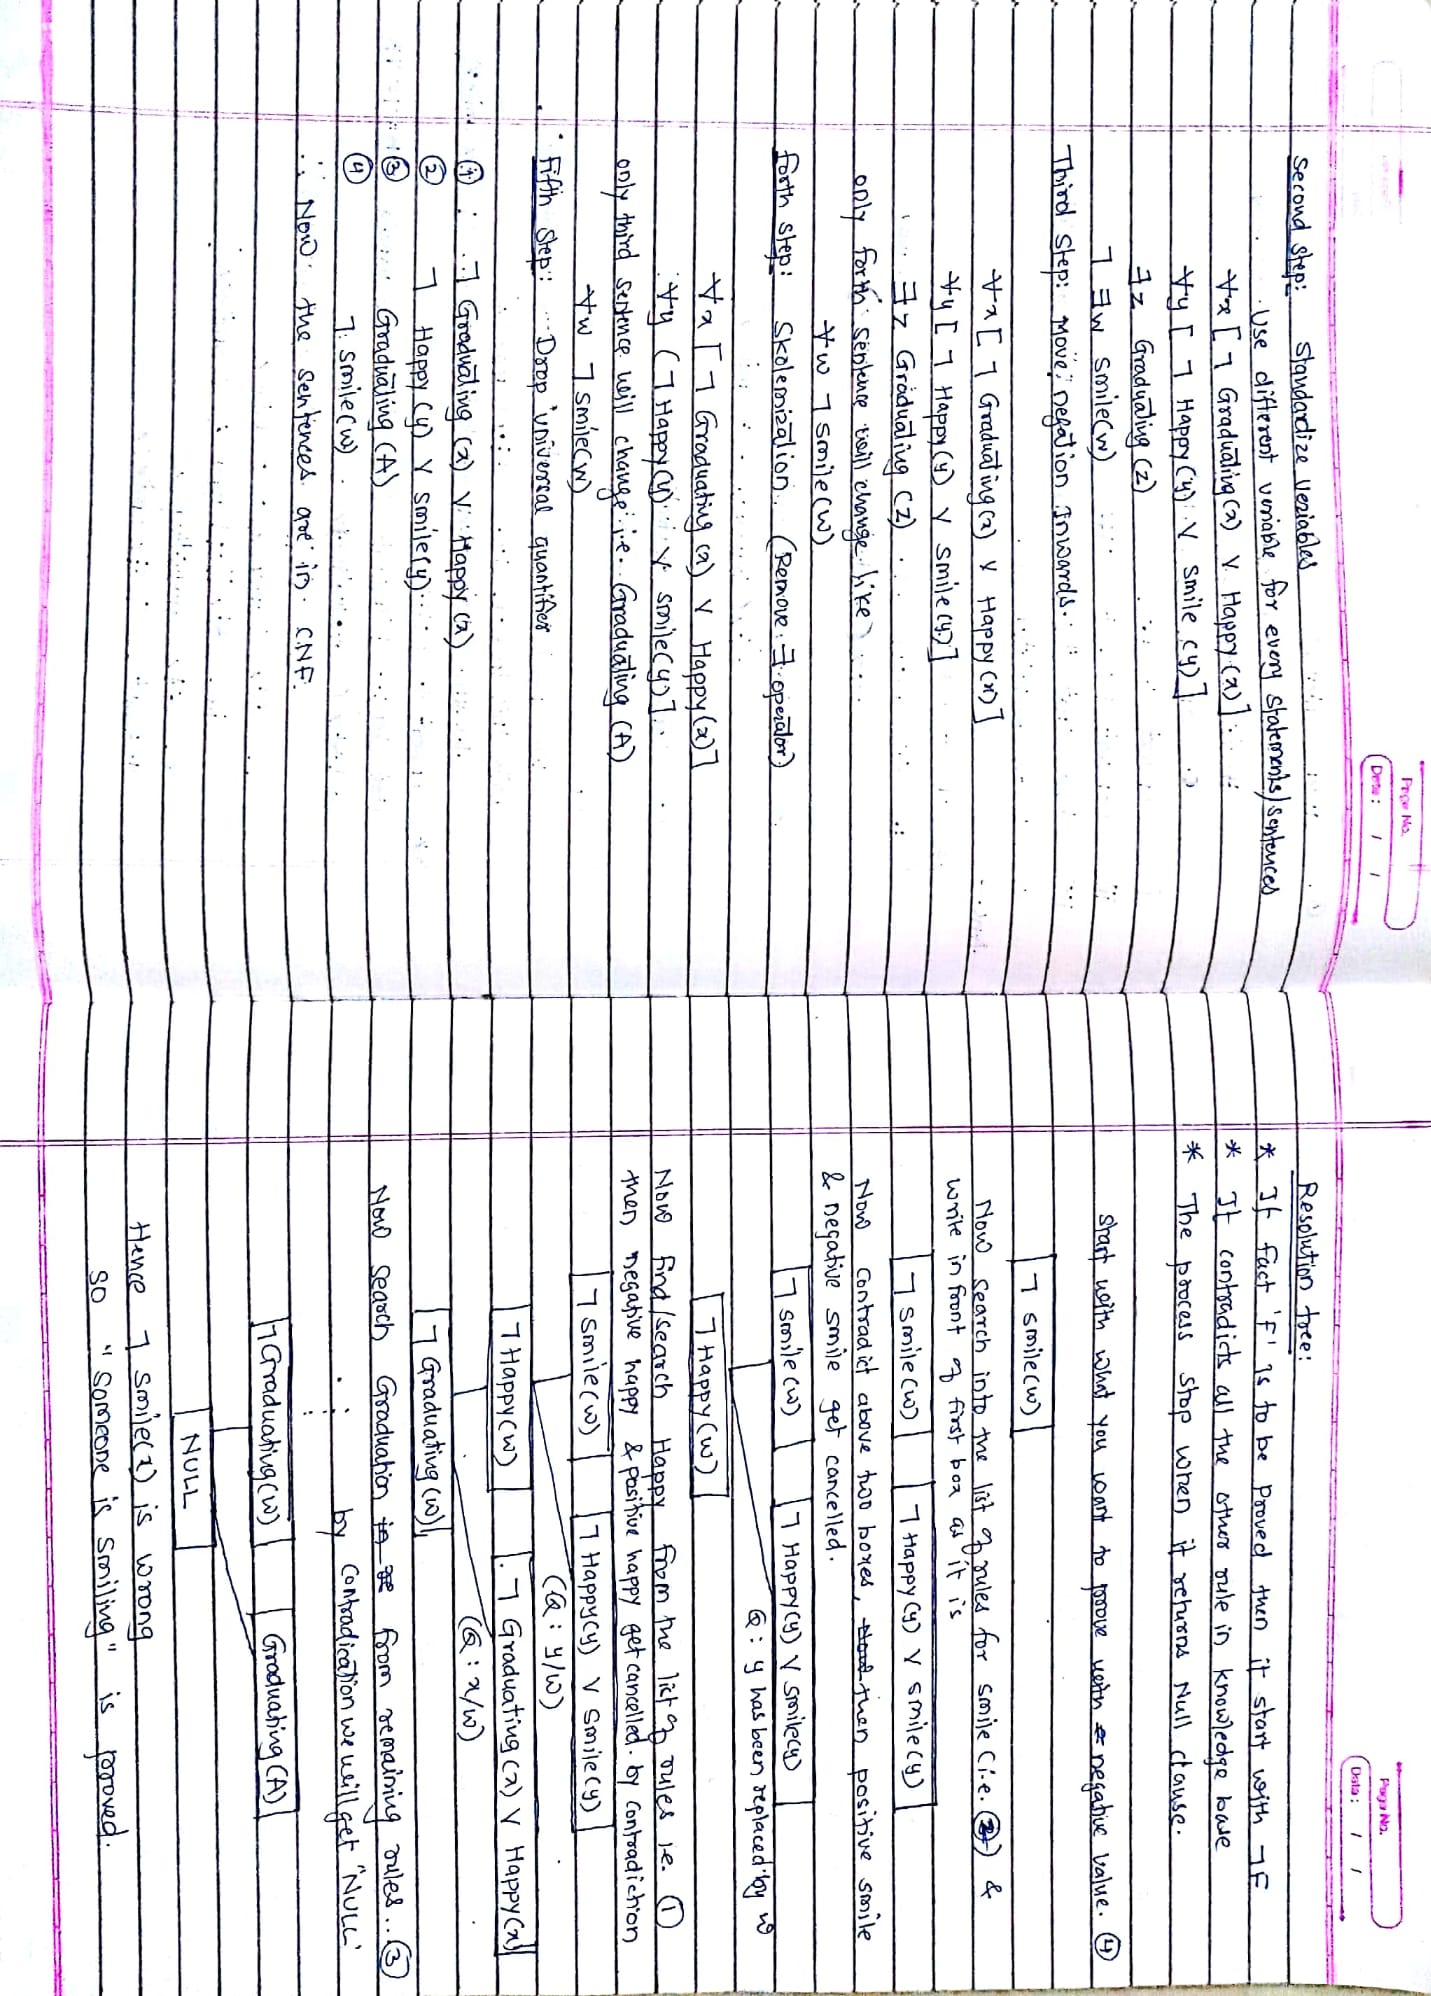 Page No.
Date: / /
Second step: Standardize veriables
Use different veriable for every statements/sentences
∀x [ ¬ Graduating(x) ∨ Happy(x) ]
∀y [ ¬ Happy(y) ∨ Smile(y) ]
∃z Graduating(z)
¬ ∃w smile(w)
Third step: Move negation Inwards.
∀x [ ¬ Graduating(x) ∨ Happy(x) ]
∀y [ ¬ Happy(y) ∨ smile(y) ]
∃z Graduating(z)
only forth sentence will change like
∀w ¬ smile(w)
forth step: Skolemization (Remove ∃ operator)
∀x [ ¬ Graduating(x) ∨ Happy(x) ]
∀y ( ¬ Happy(y) ∨ smile(y) ]
only third sentence will change i.e. Graduating (A)
∀w ¬ smile(w)
Fifth step: Drop universal quantifier
① ¬ Graduating (x) ∨ Happy (x)
② ¬ Happy (y) ∨ smile(y)
③ Graduating (A)
④ ¬ smile(w)
∴ Now the sentences are in CNF.
Page No.
Date: / /
Resolution tree:
* If fact 'F' is to be proved then it start with ¬F
* It contradicts all the other rule in knowledge base
* The process stop when it returns Null clause.
start with what you want to prove with negative value. ④
¬ smile(w)
Now search into the list of rules for smile (i.e. ②) &
write in front of first box as it is
¬ smile(w) ¬ Happy(y) ∨ smile(y)
Now contradict above two boxes, then positive smile
& negative smile get cancelled.
¬ smile(w) ¬ Happy(y) ∨ smile(y)
Q : y has been replaced by w
¬ Happy(w)
Now find/search Happy from the list of rules i.e. ①
then negative happy & positive happy get cancelled. by contradiction
¬ smile(w) ¬ Happy(y) ∨ smile(y)
(Q : y/w)
¬ Happy(w) ¬ Graduating(x) ∨ Happy(x)
(Q : x/w)
¬ Graduating(w)
Now search Graduation from remaining rules.. ③
by Contradication we will get "NULL"
¬ Graduating(w) Graduating(A)
NULL
Hence ¬ smile(x) is wrong
so "someone is smiling" is proved.